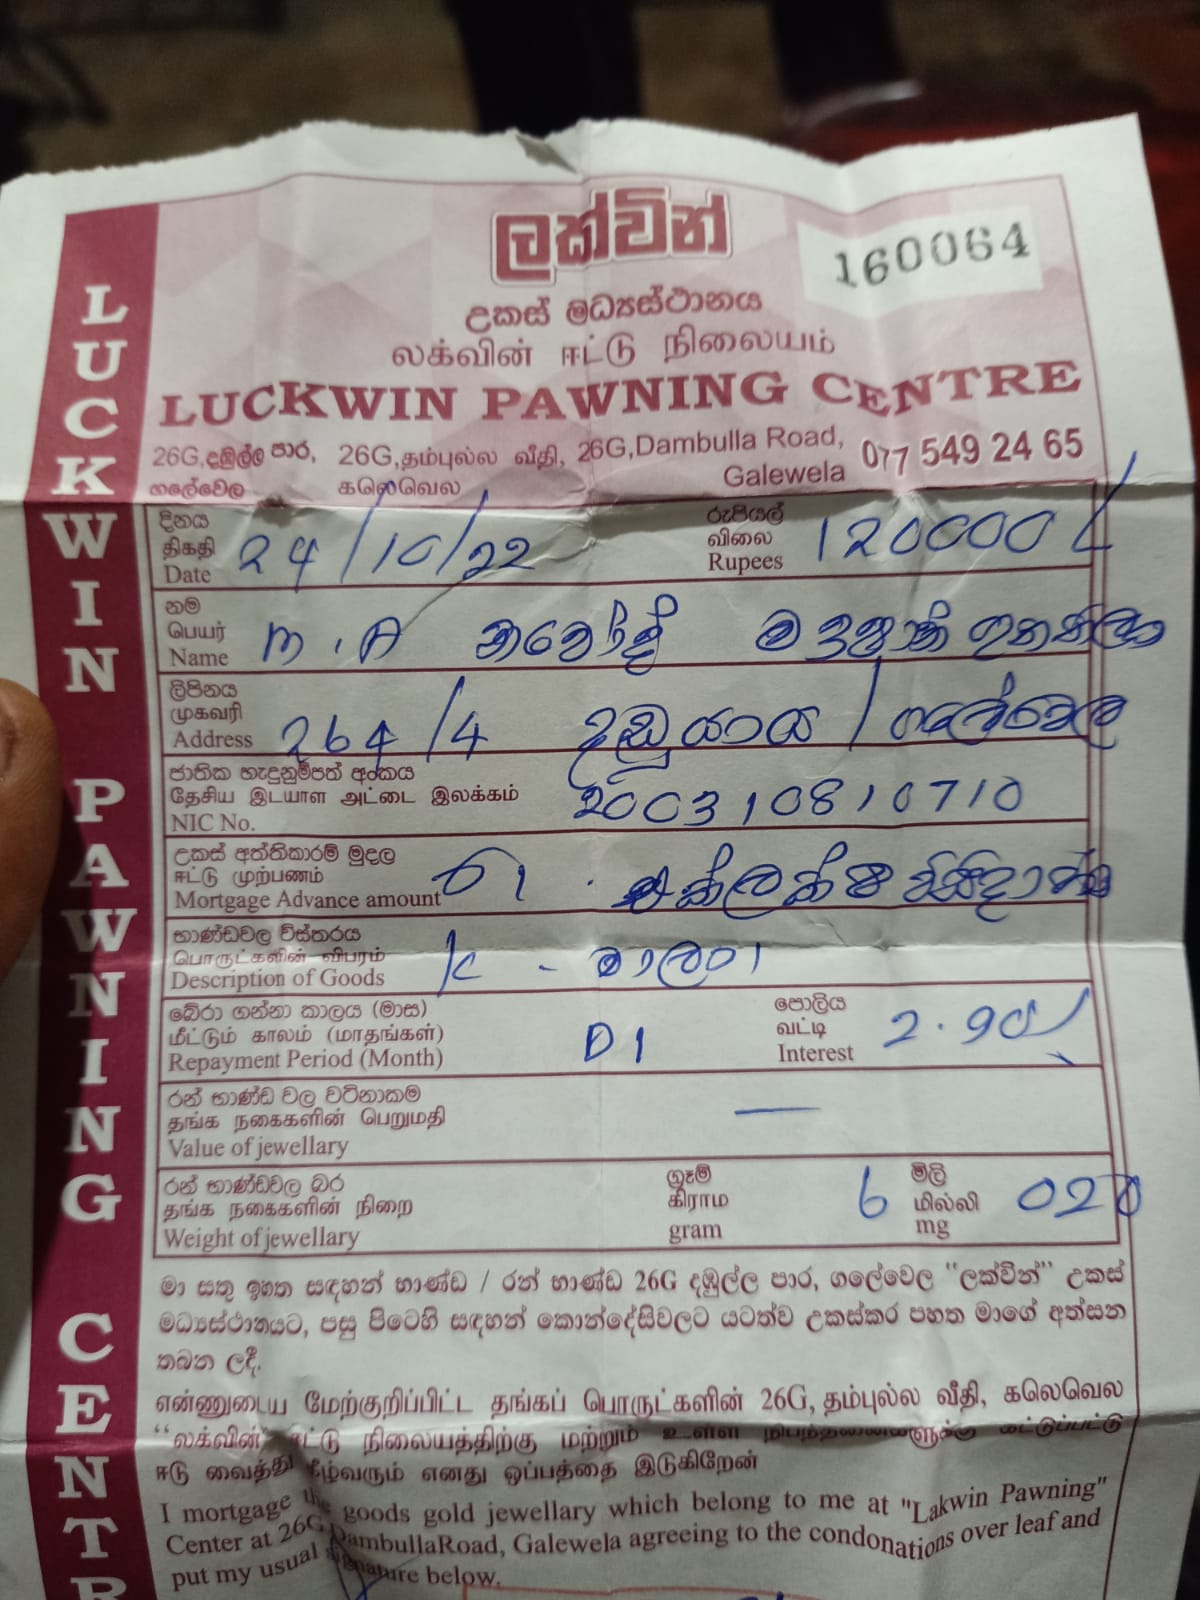 ලක්වින්
160064
උකස් මධ්‍යස්ථානය
லக்வின் ஈட்டு நிலையம்
LUCKWIN PAWNING CENTRE
26G,දඹුල්ල පාර, ගලේවෙල
26G,தம்புல்ல வீதி, கலெவெல
26G,Dambulla Road, Galewela
077 549 24 65
LUCKWIN PAWNING CENTR
දිනය
திகதி
Date 24/10/22
රුපියල්
விலை
Rupees 120000/
නම
பெயர்
Name M.A
ලිපිනය
முகவரி
Address 264/4 / ගලේවෙල
ජාතික හැඳුනුම්පත් අංකය
தேசிய இடயாள அட்டை இலக்கம்
NIC No. 200310810710
උකස් අත්තිකාරම් මුදල
ஈட்டு முற்பணம்
Mortgage Advance amount රු. එක්ලක්ෂ විසිදාහ
භාණ්ඩවල විස්තරය
பொருட்களின் விபரம்
Description of Goods K - මාලය
බේරා ගන්නා කාලය (මාස)
மீட்டும் காலம் (மாதங்கள்)
Repayment Period (Month) 01
පොලිය
வட்டி
Interest 2.90/
රන් භාණ්ඩ වල වටිනාකම
தங்க நகைகளின் பெறுமதி
Value of jewellary —
රන් භාණ්ඩවල බර
தங்க நகைகளின் நிறை
Weight of jewellary
ග්‍රෑම්
கிராம
gram 6
මිලි
மில்லி
mg 020
මා සතු ඉහත සඳහන් භාණ්ඩ / රන් භාණ්ඩ 26G දඹුල්ල පාර, ගලේවෙල "ලක්වින්" උකස්
මධ්‍යස්ථානයට, පසු පිටෙහි සඳහන් කොන්දේසිවලට යටත්ව උකස්කර පහත මාගේ අත්සන
තබන ලදී.
என்னுடைய மேற்குறிப்பிட்ட தங்கப் பொருட்களின் 26G, தம்புல்ல வீதி, கலெவெல
"லக்வின்" ஈட்டு நிலையத்திற்கு மற்றும் உள்ள நிபந்தனைகளுக்கு கட்டுப்பட்டு
ஈடு வைத்து கீழ்வரும் எனது ஒப்பத்தை இடுகிறேன்
I mortgage the goods gold jewellary which belong to me at "Lakwin Pawning"
Center at 26G DambullaRoad, Galewela agreeing to the condonations over leaf and
put my usual signature below.